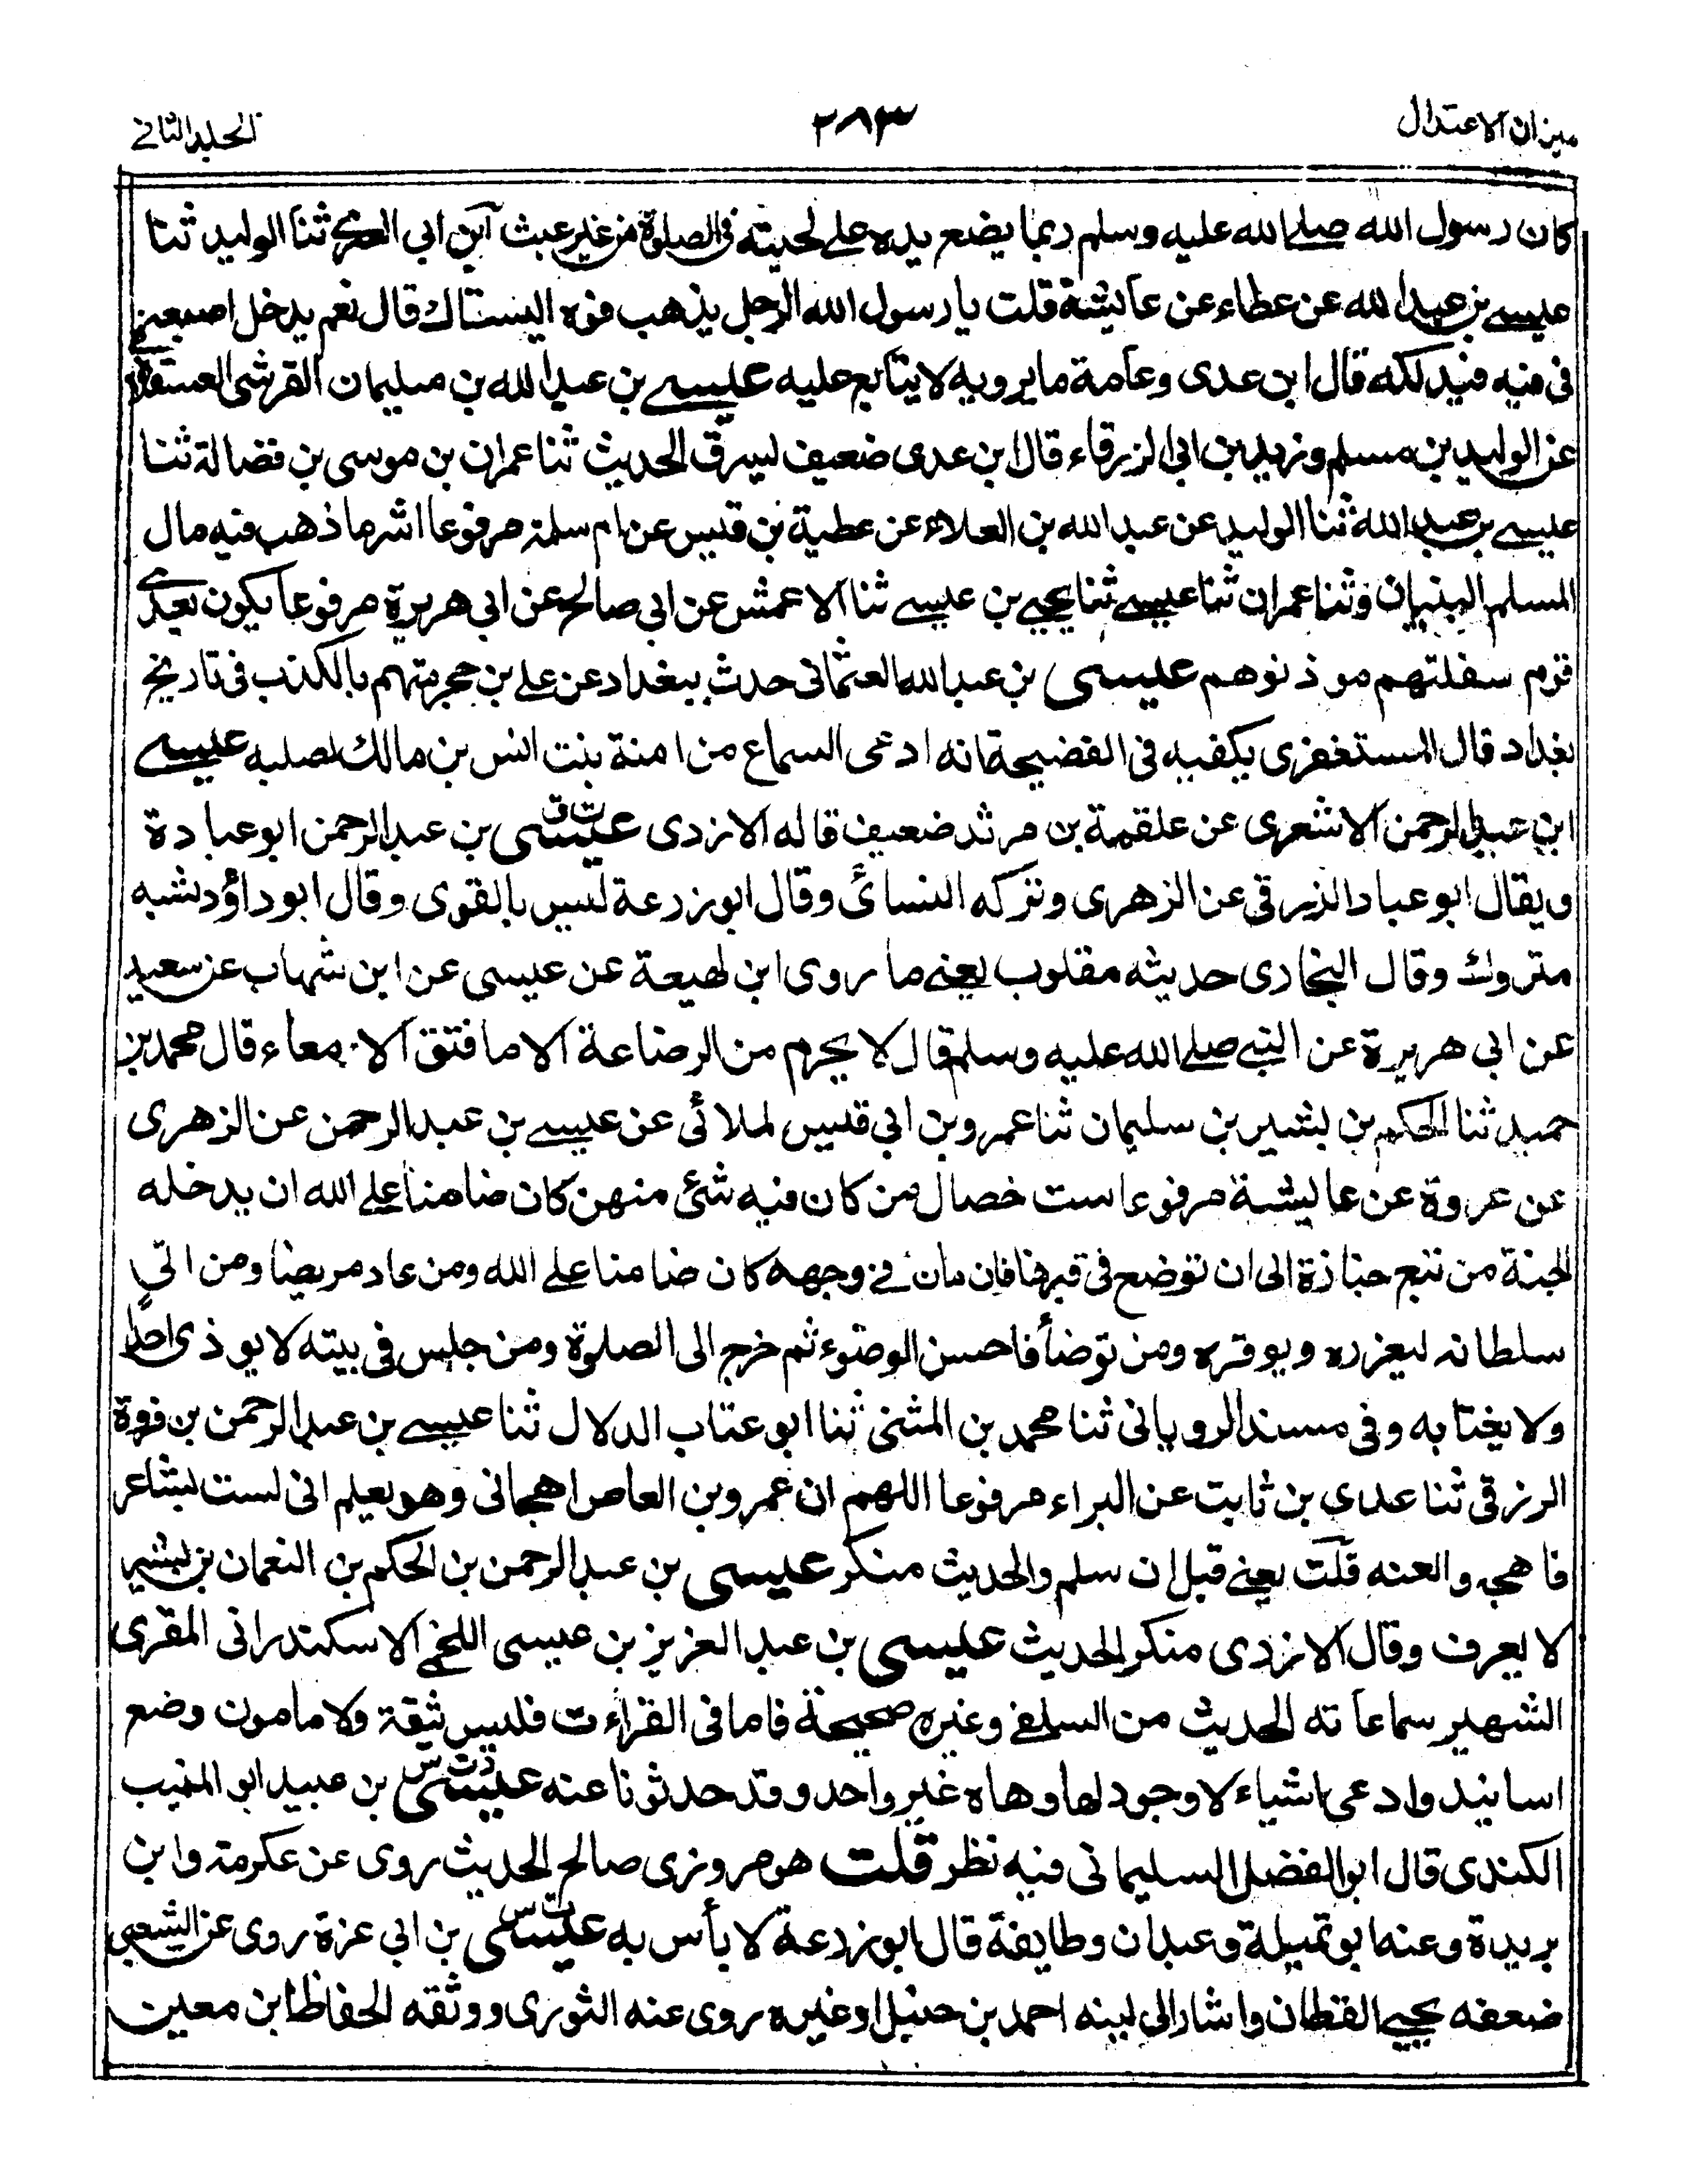 ميزان الاعتدال
٢٨٣
الجلد الثاني
كان رسول الله صلى الله عليه وسلم ربما يضع يده على لحيته فى الصلوة من غير عبث ابن ابى السرى ثنا الوليد ثنا
عيسى بن عبد الله عن عطاء عن عايشة قلت يا رسول الله الرجل يذهب فوه اليستاك قال نعم يدخل اصبعه
فى فيه فيدلكه قال ابن عدى وعامة ما يرويه لا يتابع عليه عيسى بن عبد الله بن سليمان القرشى العسقلانى
عن الوليد بن مسلم وزيد بن ابى الزرقاء قال ابن عدى ضعيف ليسرق الحديث ثنا عمران بن موسى بن فضالة ثنا
عيسى بن عبد الله ثنا الوليد عن عبد الله بن العلاء عن عطية بن قيس عن ام سلمة مرفوعا اشر ما ذهب فيه مال
المسلم البنيان وثنا عمران ثنا عيسى ثنا يحيى بن عيسى ثنا الاعمش عن ابى صالح عن ابى هريرة مرفوعا يكون بعدى
قوم سفلتهم موذنوهم عيسى بن عبد الله العثمانى حدث ببغداد عن على بن حجر متهم بالكذب فى تاريخ
بغداد قال المستغفرى يكفيه فى الفضيحة انه ادعى السماع من امنة بنت انس بن مالك لصلبه عيسى
ابن عبد الرحمن الاشعرى عن علقمة بن مرثد ضعيف قاله الازدى عيسى ت ق بن عبد الرحمن ابو عبادة
ويقال ابو عباد الزرقى عن الزهرى وتركه النسائى وقال ابو زرعة ليس بالقوى وقال ابو داؤد شبه
متروك وقال البخارى حديثه مقلوب يعنى ما روى ابن لهيعة عن عيسى عن ابن شهاب عن سعيد
عن ابى هريرة عن النبى صلى الله عليه وسلم قال لا يحرم من الرضاعة الا ما فتق الامعاء قال محمد بن
حميد ثنا الحكم بن بشير بن سليمان ثنا عمرو بن ابى قيس لملائى عن عيسى بن عبد الرحمن عن الزهرى
عن عروة عن عايشة مرفوعا ست خصال من كان فيه شئ منهن كان ضامنا على الله ان يدخله
الجنة من تبع جنازة الى ان توضع فى قبرها فان مات فى وجهه كان ضامنا على الله ومن عاد مريضا ومن اتى
سلطانه ليعزره ويوقره ومن توضأ فاحسن الوضوء ثم خرج الى الصلوة ومن جلس فى بيته لا يوذى احدا
ولا يغتابه وفى مسند الرويانى ثنا محمد بن المثنى ثنا ابو عتاب الدلال ثنا عيسى بن عبد الرحمن بن فروة
الرزقى ثنا عدى بن ثابت عن البراء مرفوعا اللهم ان عمرو بن العاص اهجانى وهو يعلم انى لست بشاعر
فاهجه والعنه قلت يعنى قبل ان سلم والحديث منكر عيسى بن عبد الرحمن بن الحكم بن النعمان بن بشير
لا يعرف وقال الازدى منكر الحديث عيسى بن عبد العزيز بن عيسى اللخمى الاسكندرانى المقرى
الشهير سماعاته الحديث من السلفى وغيره صحيحة فاما فى القراءت فليس بثقة ولا مامون وضع
اسانيد وادعى اشياء لا وجود لها وهاه غير واحد وقد حدثونا عنه عيسى د ت س بن عبيد ابو المنيب
الكندى قال ابو الفضل السليمانى فيه نظر قلت هو مروزى صالح الحديث روى عن عكرمة وابن
بريدة وعنه ابو تميلة وعبدان وطايفة قال ابو زرعة لا بأس به عيسى ت س بن ابى عزة روى عن الشعبى
ضعفه يحيى القطان واشار الى لينه احمد بن حنبل اوغيره روى عنه الثورى ووثقه الحفاظ ابن معين